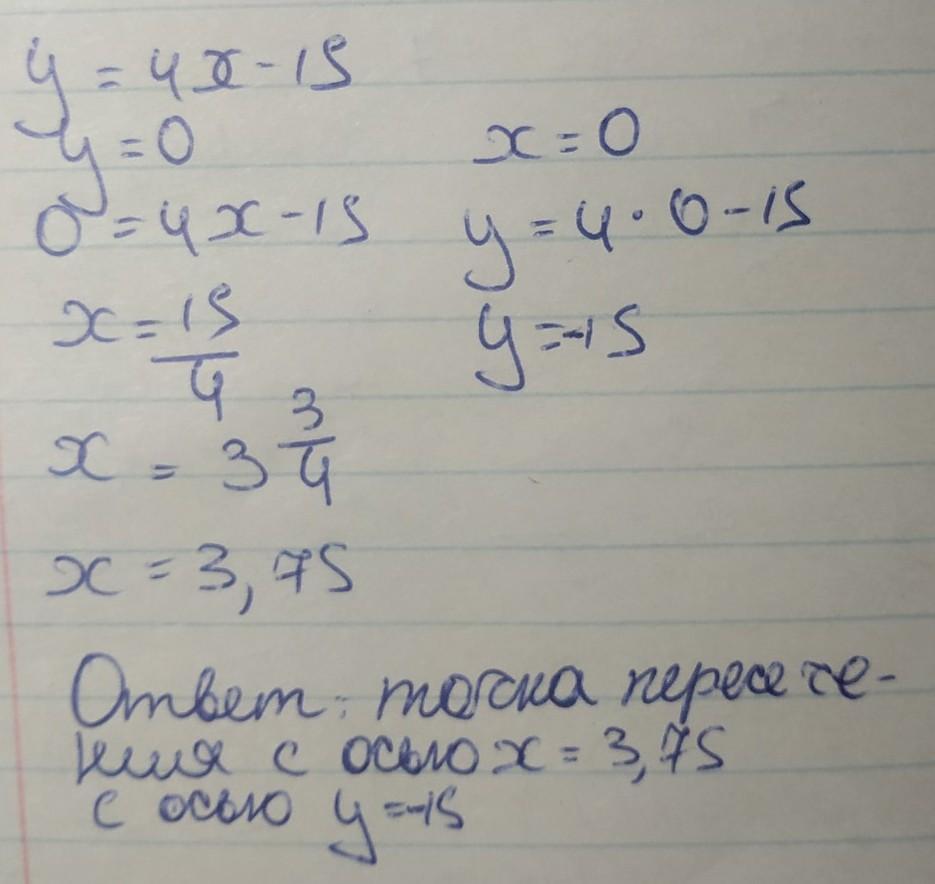 y = 4x - 15
y = 0
0 = 4x - 15
x = 15/4
x = 3 3/4
x = 3,75
x = 0
y = 4 · 0 - 15
y = -15
Ответ: точка пересече-
ния с осью x = 3,75
с осью y = -15